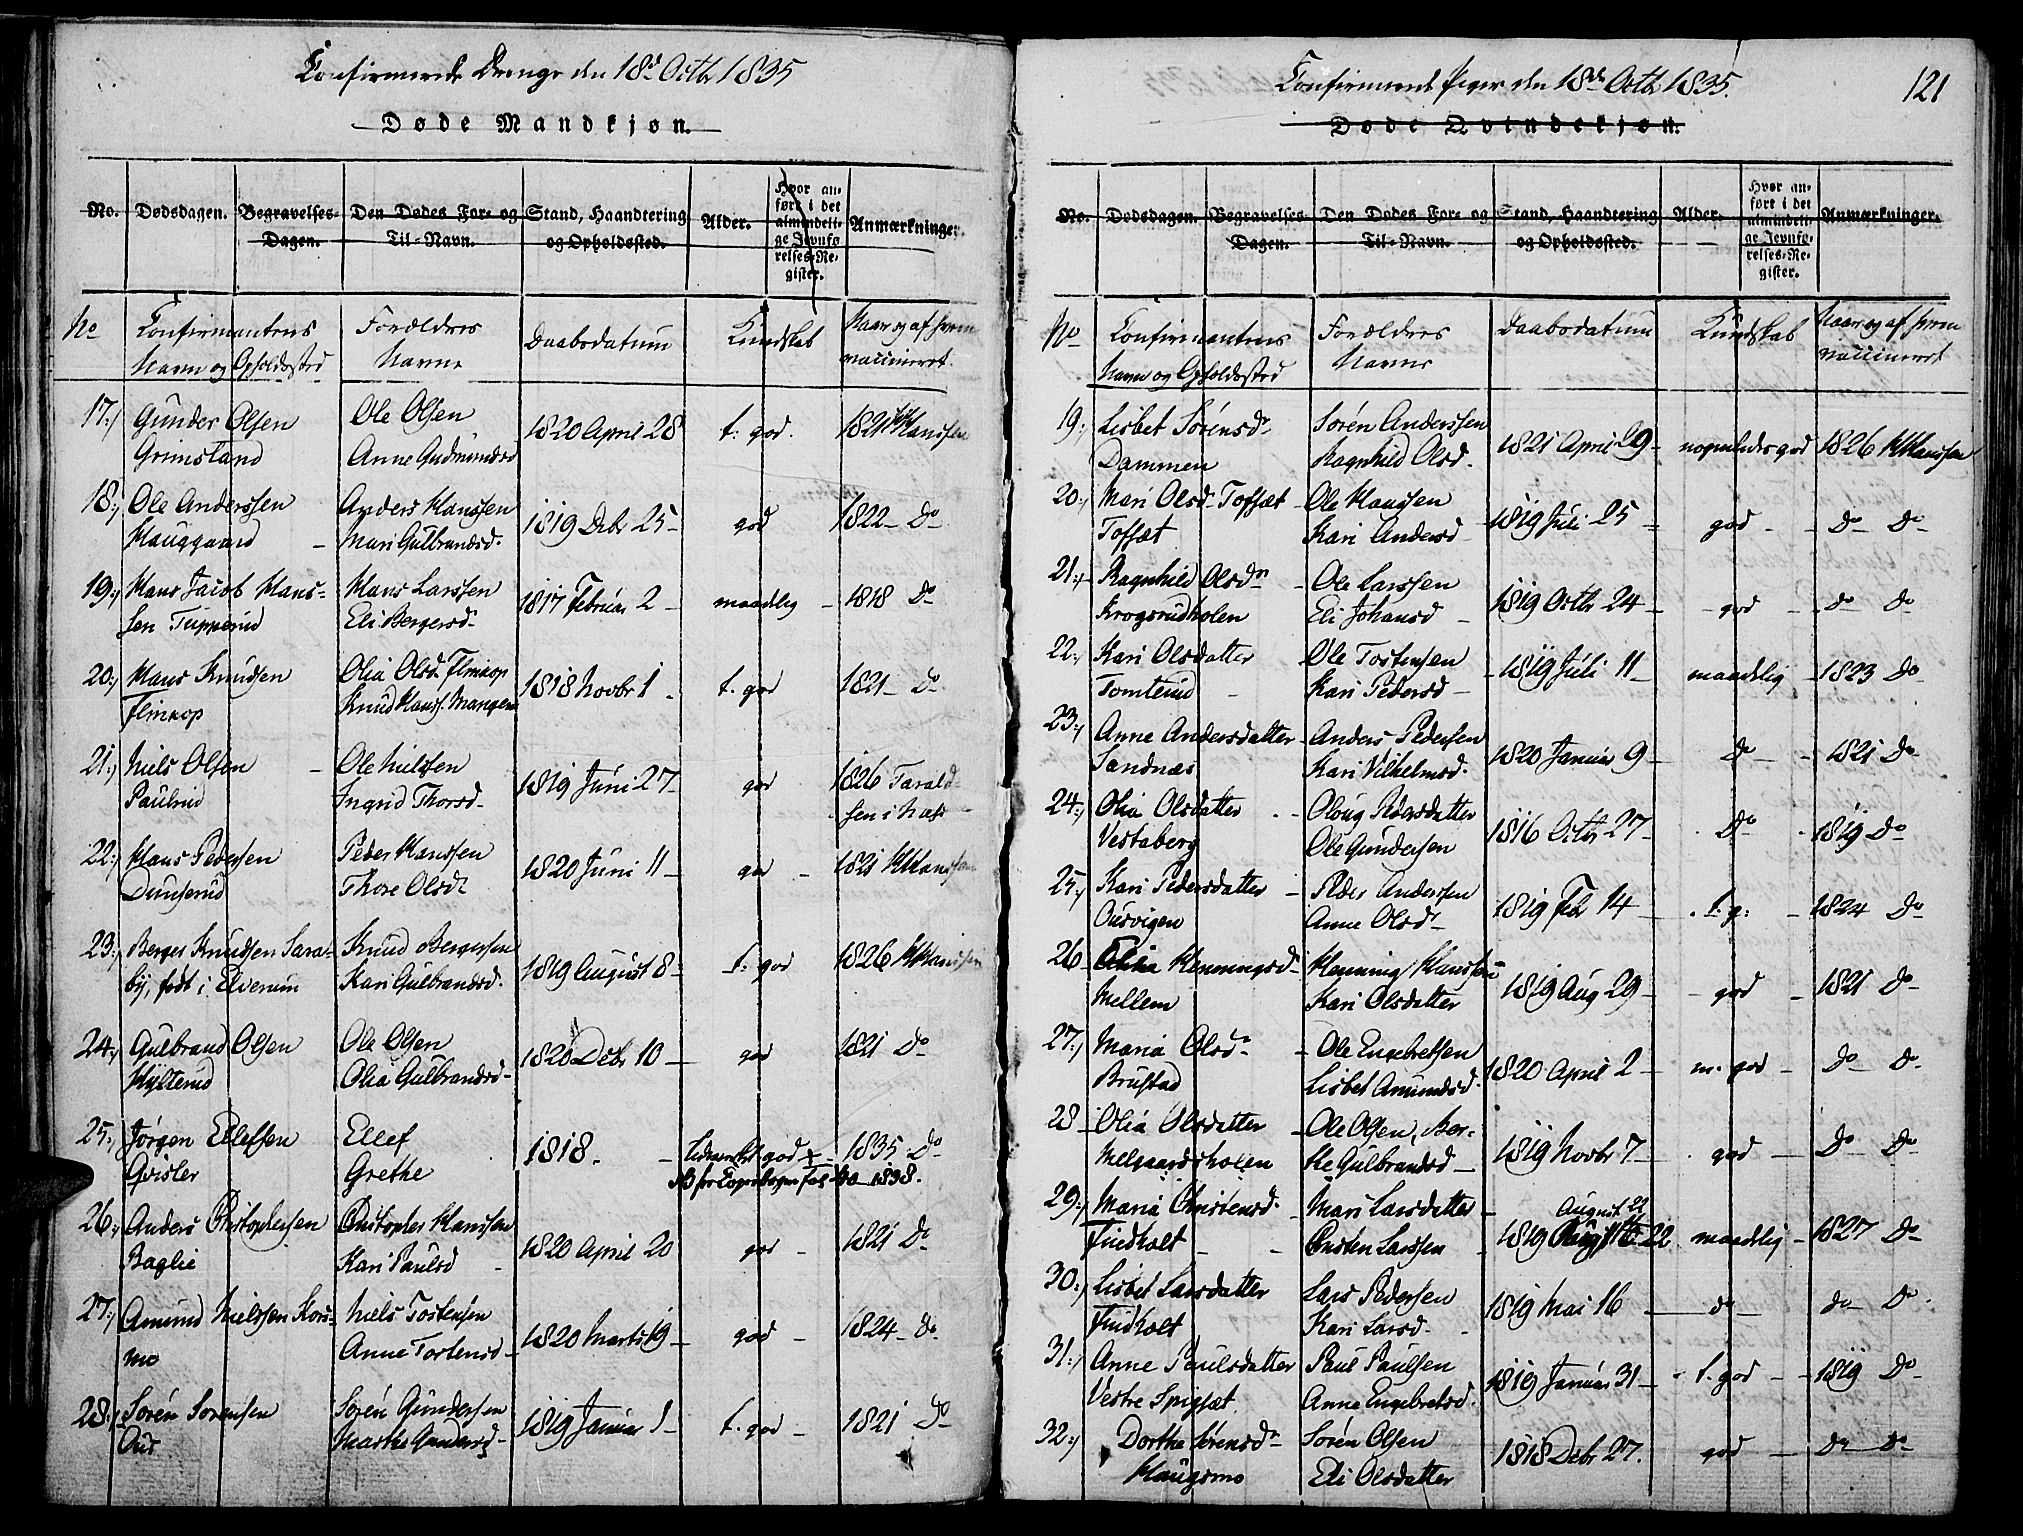 Confirmerede Drenge den 18d Octbr 1835
Døde Mandkjøn.
No. Dødsdagen. Begravelses-Dagen. Den Dødes For- og Til-Navn. Stand, Haandtering og Opholdssted. Alder. Hvor anført i det almindelige Jevnførelses-Register. Anmærkninger.
No Confirmantens Navn og Opholdssted Forældres Navne Daabsdatum Kundskab Naar og af hvem vaccineret
17:) Gunder Olsen Ole Olsen 1820 April 28 t: god. 1821 Hanssen
Grimsland Anne Gudmundsd
18:) Ole Anderssen Anders Hanssen 1819 Debr 25 god 1822 Do
Hauggaard Mari Gulbrandsd.
19:) Hans Jacob Hans- Hans Larssen 1817 Februar 2 maadlig 1818 Do
sen Tupperud Eli Bergersd.
20:) Hans Knudsen Olia Olsd. Flinkop 1818 Novbr 1 t. god 1821 Do
Flinkop Knud Hanss. Mangen
21:) Niels Olsen Ole Nielsen 1819 Juni 27 god 1826 Tarald-
Paulrud Ingrid Thorsd sen i
22:) Hans Pedersen Peder Hanssen 1820 Juni 11 god 1821 H Hanssen
Dunserud Thore Olsdr
23:) Berger Knudsen Sara- Knud Bergersen 1819 August 8 t: god 1826 H Hanssen
by, født i Elverum Kari Gulbrandsd.
24:) Gulbrand Olsen Ole Olsen 1820 Debr 10 god 1821 Do
Hylterud Olia Gulbrandsd
25:) Jørgen Ellefsen Ellef 1818. god 1835 Do
Qvisler Grethe 1838.
26:) Anders Christophersen Christopher Hanssen 1820 April 20 god 1821 Do
Baglie Kari Paulsd
27:) Amund Nielssen Kors- Niels Tostensen 1820 Marts 19 god 1824 Do
mo Anne Tortensd
28:) Sørén Sørensen Sørén Gundersen 1819 Januar 1 t. god 1821 Do
Aus Marthe Gundersd
Confirmerede Piger den 18de Octbr 1835.
121
Døde Qvindekjøn.
No. Dødsdagen. Begravelses-Dagen. Den Dødes For- og Til-Navn. Stand, Haandtering og Opholdssted. Alder. Hvor anført i det almindelige Jevnførelses-Register. Anmærkninger.
No Confirmantens Navn og Opholdssted Forældres Navne Daabsdatum Kundskab Naar og af hvem vaccineret
19:) Lisbet Sørensdr Sørén Anderssen 1821 April 29 nogenledes god 1826 H Hanssen
Dammen Ragnhild Olsd.
20:) Mari Olsd Toffæt Ole Hanssen 1819 Juli 25 god Do Do
Toffæt Kari Andersd
21:) Ragnhild Olsdr Ole Larssen 1819 Octbr 24 god Do Do
Krogsrudholen Eli Johansd
22:) Kari Olsdatter Ole Tostensen 1819 Juli 11 maadlig 1823 Do
Tomterud Kari Pedersd
23:) Anne Andersdatter Anders Pedersen 1820 Januar 9 Do 1821 Do
Sandnæs Kari Vilhelmsd.
24:) Olia Olsdatter Oloug Pedersdatter 1816 Octbr 27 Do 1819 Do
Vestaberg Ole Gundersen
25:) Kari Pedersdatter Peder Andersen 1819 Feb 14 t. g: 1824 Do
Ousvigen Anne Olsdr
26 Henningsd. Henning Hanssen 1819 Aug 29 god 1821 Do
Mellem Kari Olsdatter
27:) Maria Olsdr Ole Engebretsen 1820 April 2 m. god Do Do
Brustad Lisbet Amundsd.
28 Olia Olsdatter Ole Olsen, Ber- 1819 Novbr 7 god Do Do
Melgaardsholen the Gulbrandsd
29:) Maria Christensd. Mari Larsdatter August 22 1819 22 maadlig 1827 Do
Findholt Christen Larssen
30:) Lisbet Larsdatter Lars Pedersen 1819 Mai 16 do do Do
Findholt Kari Larsd.
31:) Anne Paulsdatter Paul Paulsen 1819 Januar 31 t. god 1819 Do
Vestre Spigsæt Anne Engebretsd.
32:) Dorthe Sørensdr Sørén Olsen 1818 Debr 27. god Do Do
Haugsmo Eli Olsdatter